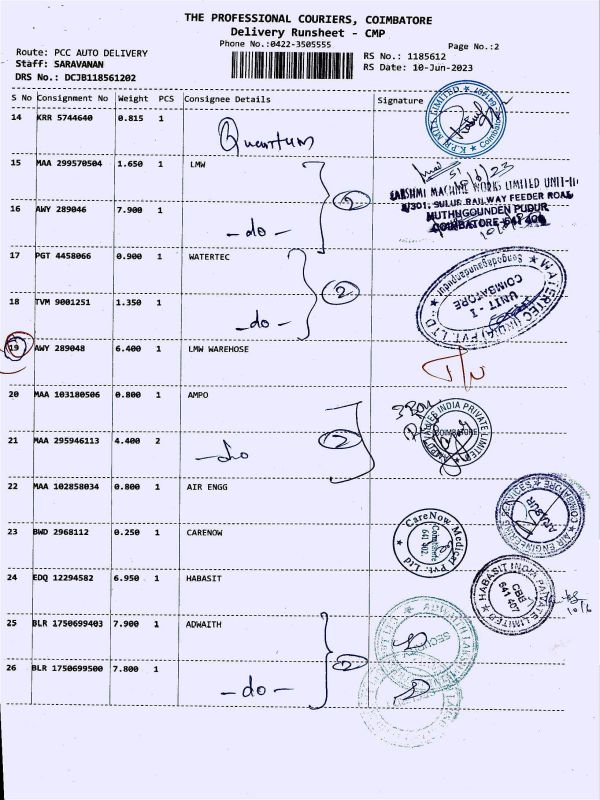 THE PROFESSIONAL COURIERS, COIMBATORE
Delivery Runsheet - CMP
Phone No.:0422-3505555
Page No.:2
Route: PCC AUTO DELIVERY
Staff: SARAVANAN
DRS No.: DCJB118561202
RS No.: 1185612
RS Date: 10-Jun-2023
S No Consignment No Weight PCS Consignee Details Signature
14 KRR 5744640 0.815 1
Quantum
15 MAA 299570504 1.650 1 LMW
2
LAKSHMI MACHINE WORKS LIMITED UNIT-II
SULUR RAILWAY FEEDER ROAD
MUTHUGOUNDEN PUDUR
COIMBATORE-641 406
16 AWY 289046 7.900 1
- do -
17 PGT 4458066 0.900 1 WATERTEC
2
WATERTEC (INDIA) PVT. LTD
UNIT - I
COIMBATORE
18 TVM 9001251 1.350 1
- do -
19 AWY 289048 6.400 1 LMW WAREHOSE
20 MAA 103180506 0.800 1 AMPO
2
INDIA PRIVATE LIMITED
COIMBATORE
21 MAA 295946113 4.400 2
- do
22 MAA 102858034 0.800 1 AIR ENGG
AIR ENGINEERING SERVICES
COIMBATORE
23 BWD 2968112 0.250 1 CARENOW
CareNow Medical Pvt. Ltd
Coimbatore
641 402.
24 EDQ 12294582 6.950 1 HABASIT
HABASIT INDIA PRIVATE LIMITED
CBE
641 407
10/6
25 BLR 1750699403 7.900 1 ADWAITH
2
SECURITY
26 BLR 1750699500 7.800 1
- do -